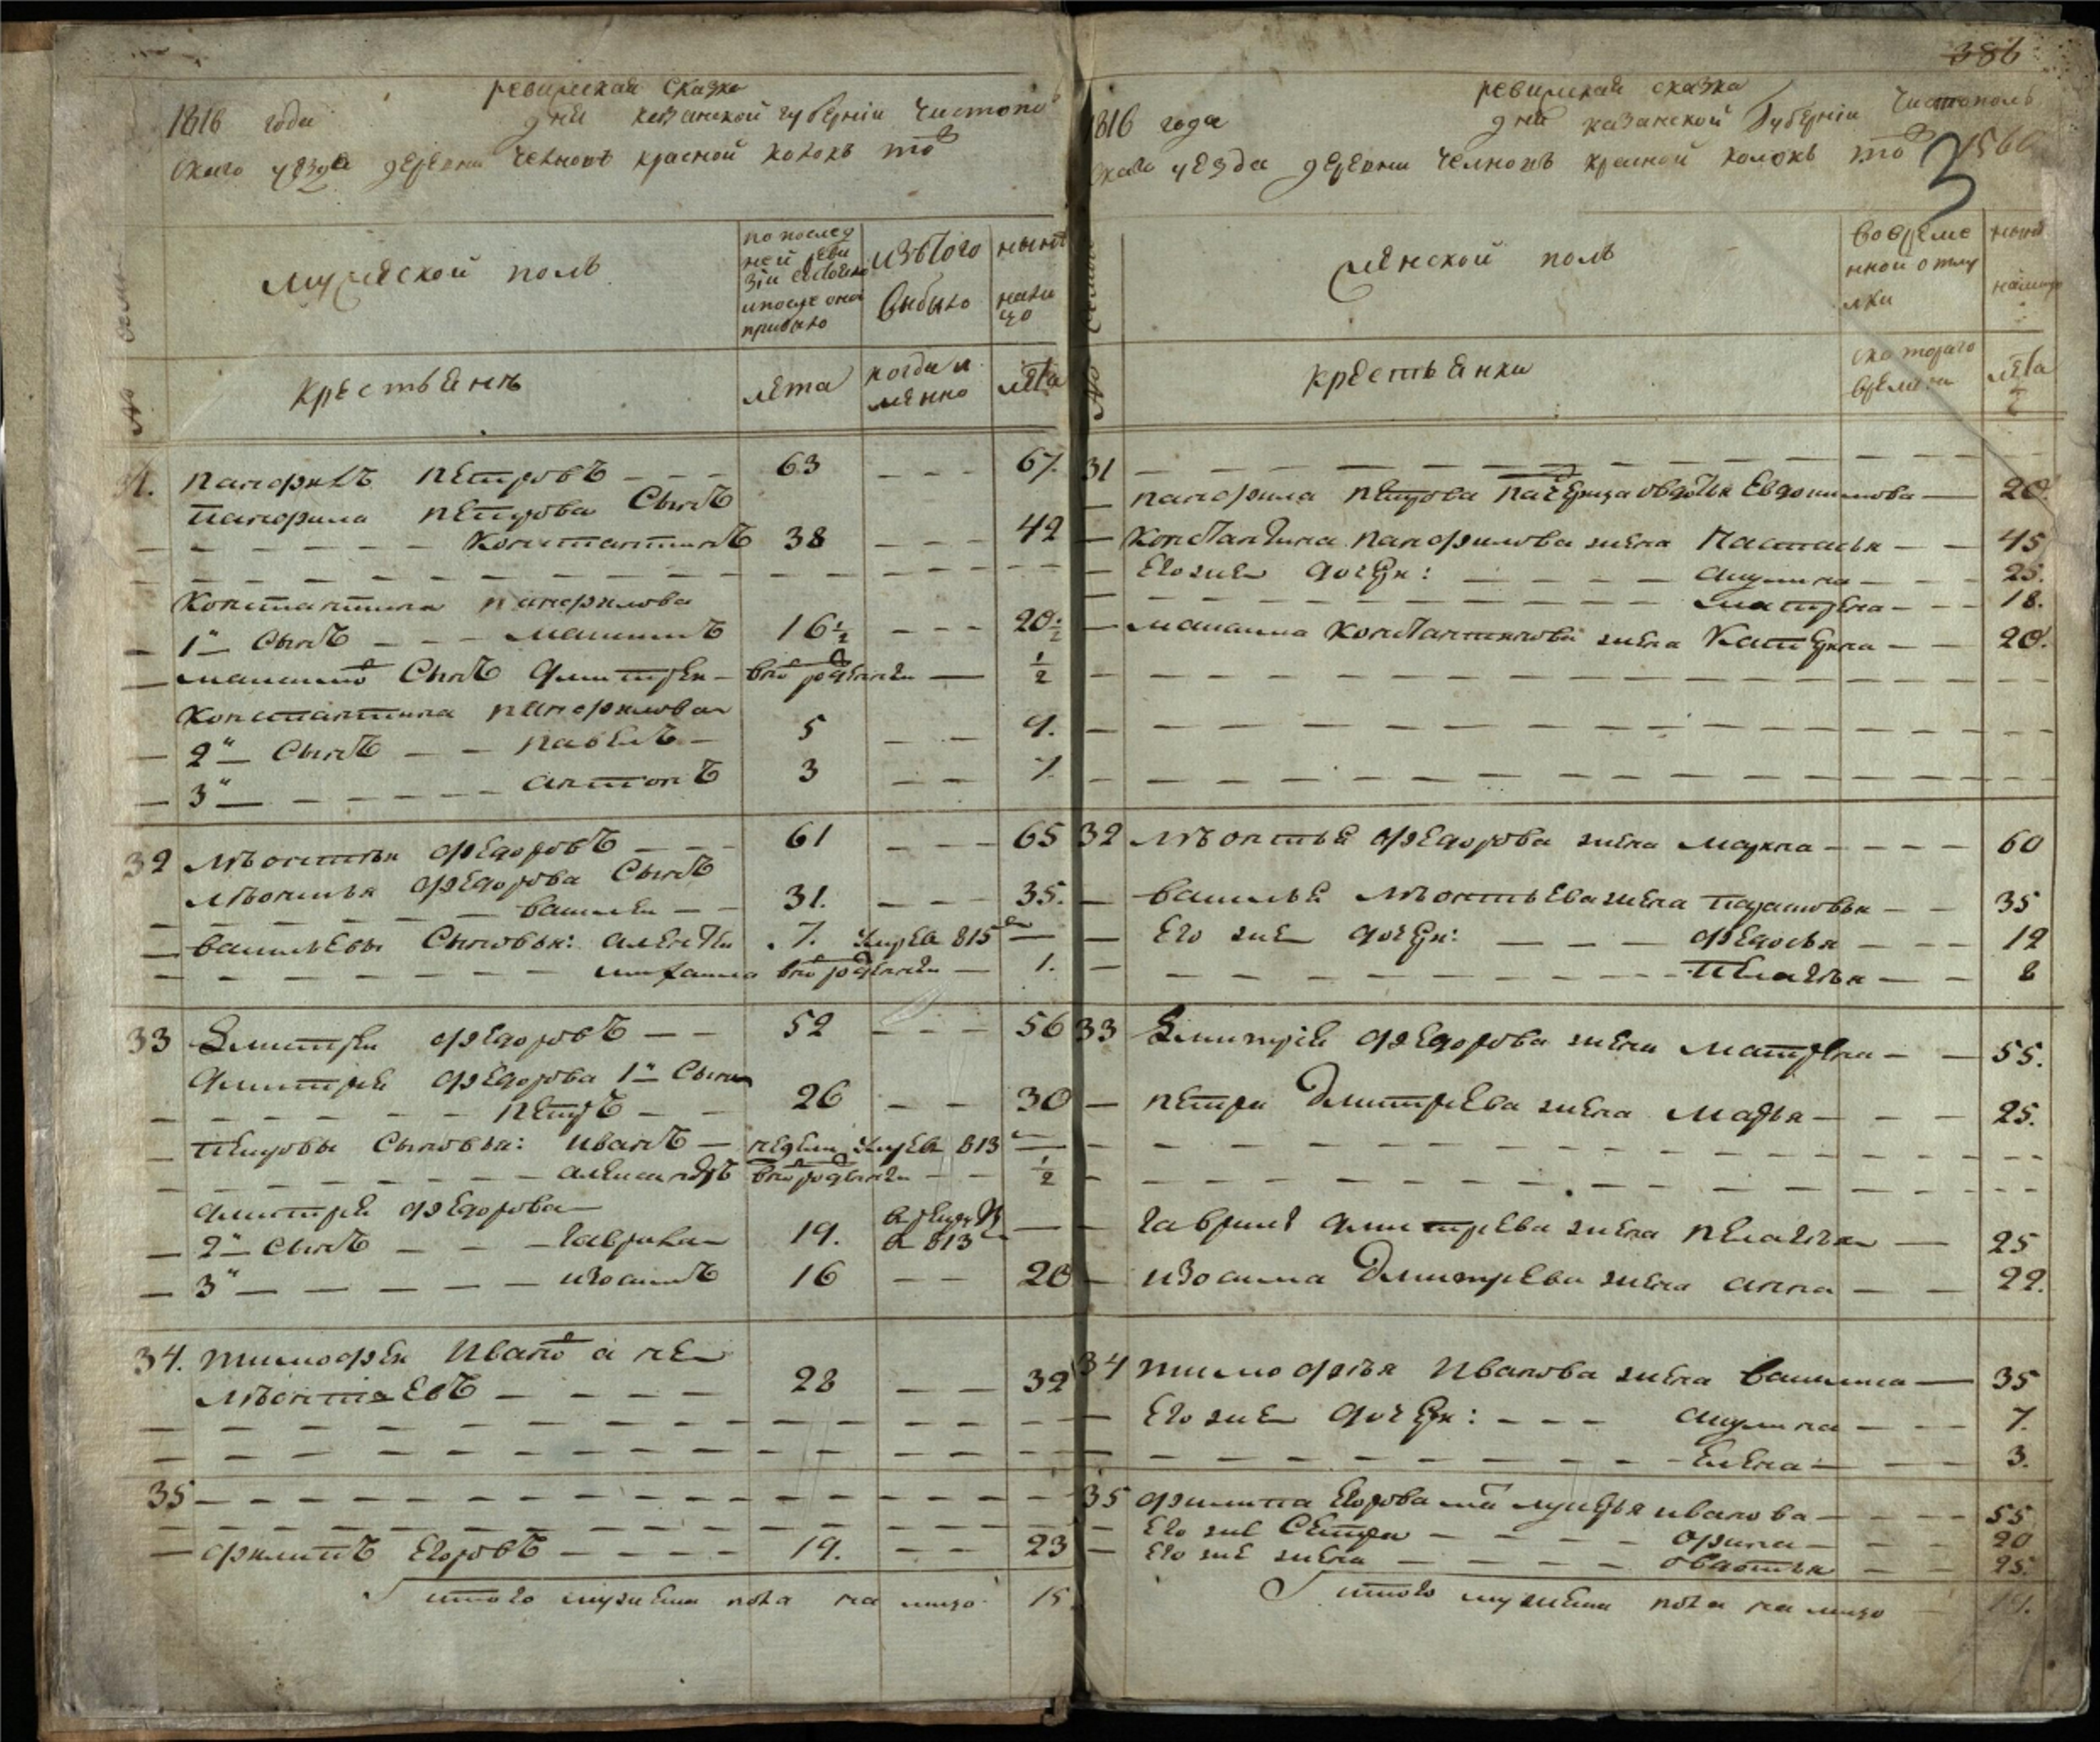 386
ревижская сказка
1816 года дня казанской губернiи Чистополь
скаго уѣзда деревни Челновъ красной колокъ тожъ
мужеской полъ
по послед
ней реви
зiи состояло
и после оной
прибыло
изътого
выбыло
ныне
на ли
цо
крестьянъ
лета
когда и
менно
лета
31. панфилъ петровъ — — — 63 — — — 67.
панфила петрова Сынъ
Константинъ 38 — — — 42
Константина панфилова
1й Сынъ — — — максимъ 16 1/2 — — — 20 1/2
Сынъ дмитрей — 1/2
Константина панфилова
2й Сынъ — — павелъ — 5 — — 9.
3й — — — антонъ 3 — — 7.
32 леонтей федоровъ — — — 61 — — — 65
леонтья федорова Сынъ
василей — — 31. — — — 35.
васильевы Сыновья: алексей 7. умре в 815 —
михаила 1.
33 дмитрей федоровъ — — 52 — — — 56
дмитрея федорова 1й Сынъ
петръ — — 26 — — 30
петровы Сыновья: иванъ — недели умре в 813 —
александръ 1/2
дмитрея федорова
2й Сынъ — — — гаврила 19. в рекруты в 813 —
3й — — — изосимъ 16 — — 20
34. тимофей Иванов а не
леонтьевъ — — — — 28 — — 32
35
филипъ Егоровъ — — — — 19. — — 23
Итого мужеска пола на лицо 15
ревижская сказка
1816 года дня казанской Губернiи Чистополь
скаго уезда деревни Челновъ красной колокъ тожъ
3
женской полъ
во време
нной отлу
чки
ныне
налицо
крестьянки
с котораго
времени
лета
31
панфила петрова падчерица овдотья Евдокимова — 20.
Константина панфилова жена Настасья — — 45
Его же дочери: — — — — акулина — — — 25.
матрена — — — 18.
максима Константинова жена Катерина — — 20.
32 леонтья федорова жена марина — — — — 60
василья леонтьева жена парасковья — — 35
Его же дочери: — — — федосья — — — 12
пелагея — — 8
33 дмитрея федорова жена матрена — — 55.
петра дмитрева жена марья — — — 25.
гаврила дмитрева жена пелагея — 25
изосима дмитрева жена анна — — 22.
34 тимофея Иванова жена василиса — 35
Его же дочери: — — — акулина — — — 7.
Елена — — — 3.
35 филипа Егорова мать лукерья иванова — — — — 55
Его же Сестра — — — — орина — — — 20
Его же жена — — — — овдотья — — 25.
Итого женска пола на лицо 19.